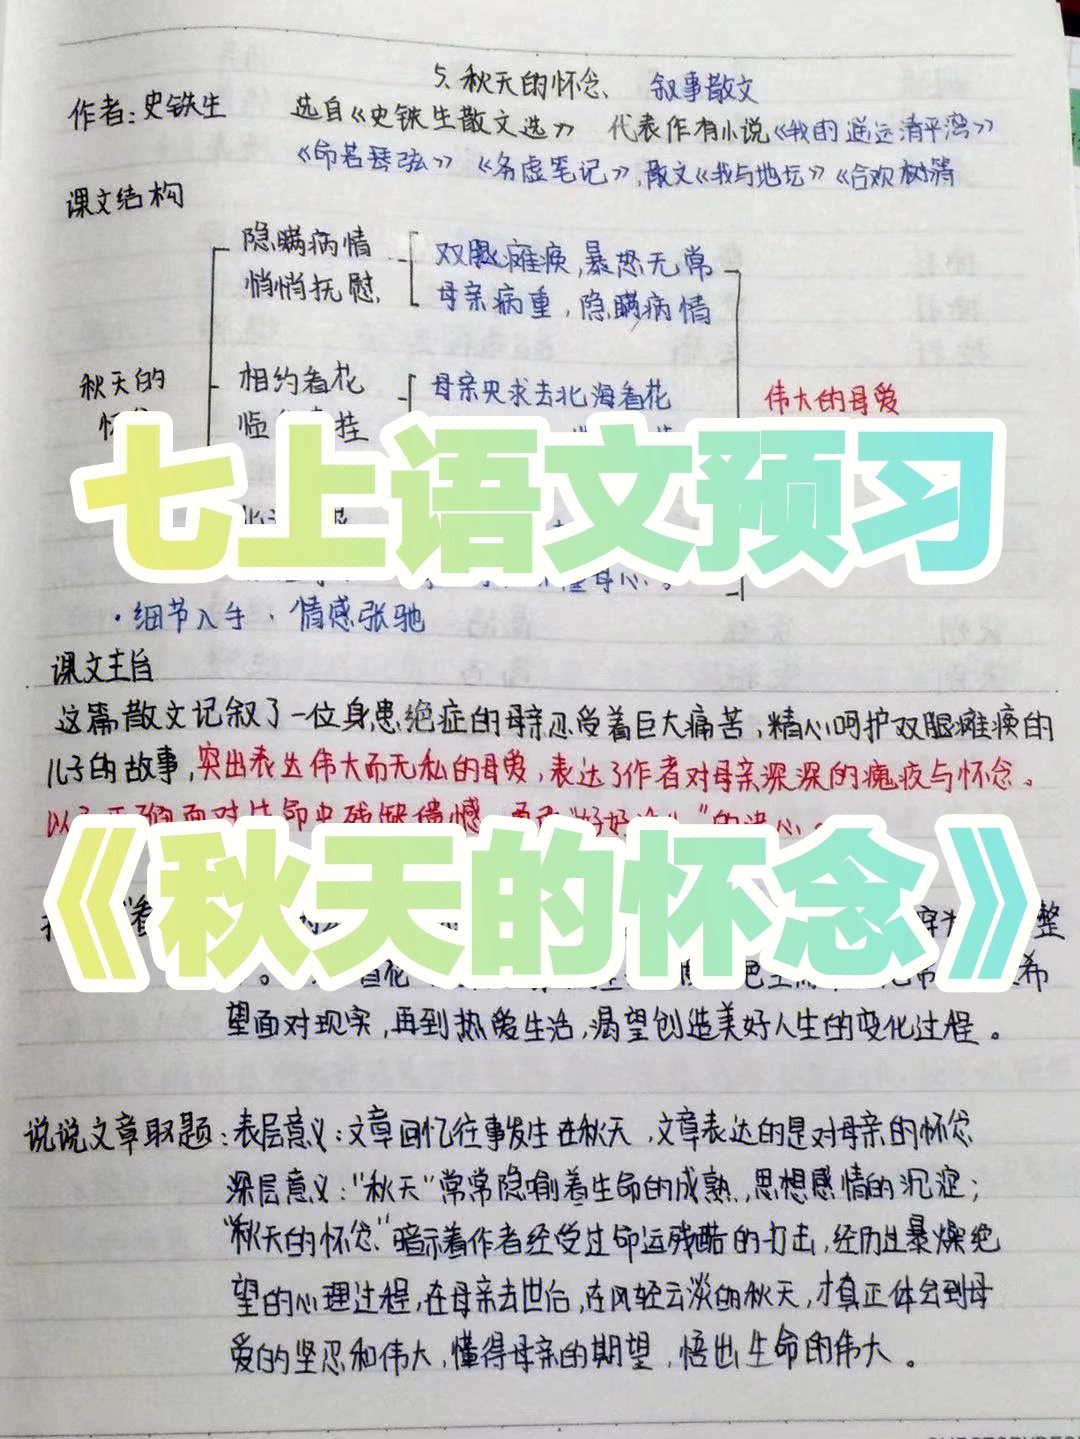 5、秋天的怀念、 叙事散文
作者:史铁生 选自《史铁生散文选》 代表作有小说《我的遥远清平湾》
《命若琴弦》《务虚笔记》,散文《我与地坛》《合欢树》等
课文结构
隐瞒病情 双腿瘫痪,暴怒无常
悄悄抚慰 母亲病重,隐瞒病情
秋天的 相约看花 母亲央求去北海看花 伟大的母爱
七上语文预习
懂母心。
·细节入手·情感张弛
课文主旨
这篇散文记叙了一位身患绝症的母亲忍受着巨大痛苦,精心呵护双腿瘫痪的
儿子的故事,突出表达伟大而无私的母爱,表达了作者对母亲深深的愧疚与怀念。
《秋天的怀念》
整
希
望面对现实,再到热爱生活,渴望创造美好人生的变化过程。
说说文章取题:表层意义:文章回忆往事发生在秋天,文章表达的是对母亲的怀念
深层意义:"秋天"常常隐喻着生命的成熟,思想感情的沉淀;
"秋天的怀念"暗示着作者经受过命运残酷的打击,经历过暴燥绝
望的心理过程,在母亲去世后,在风轻云淡的秋天,才真正体会到母
爱的坚忍和伟大,懂得母亲的期望,悟出生命的伟大。